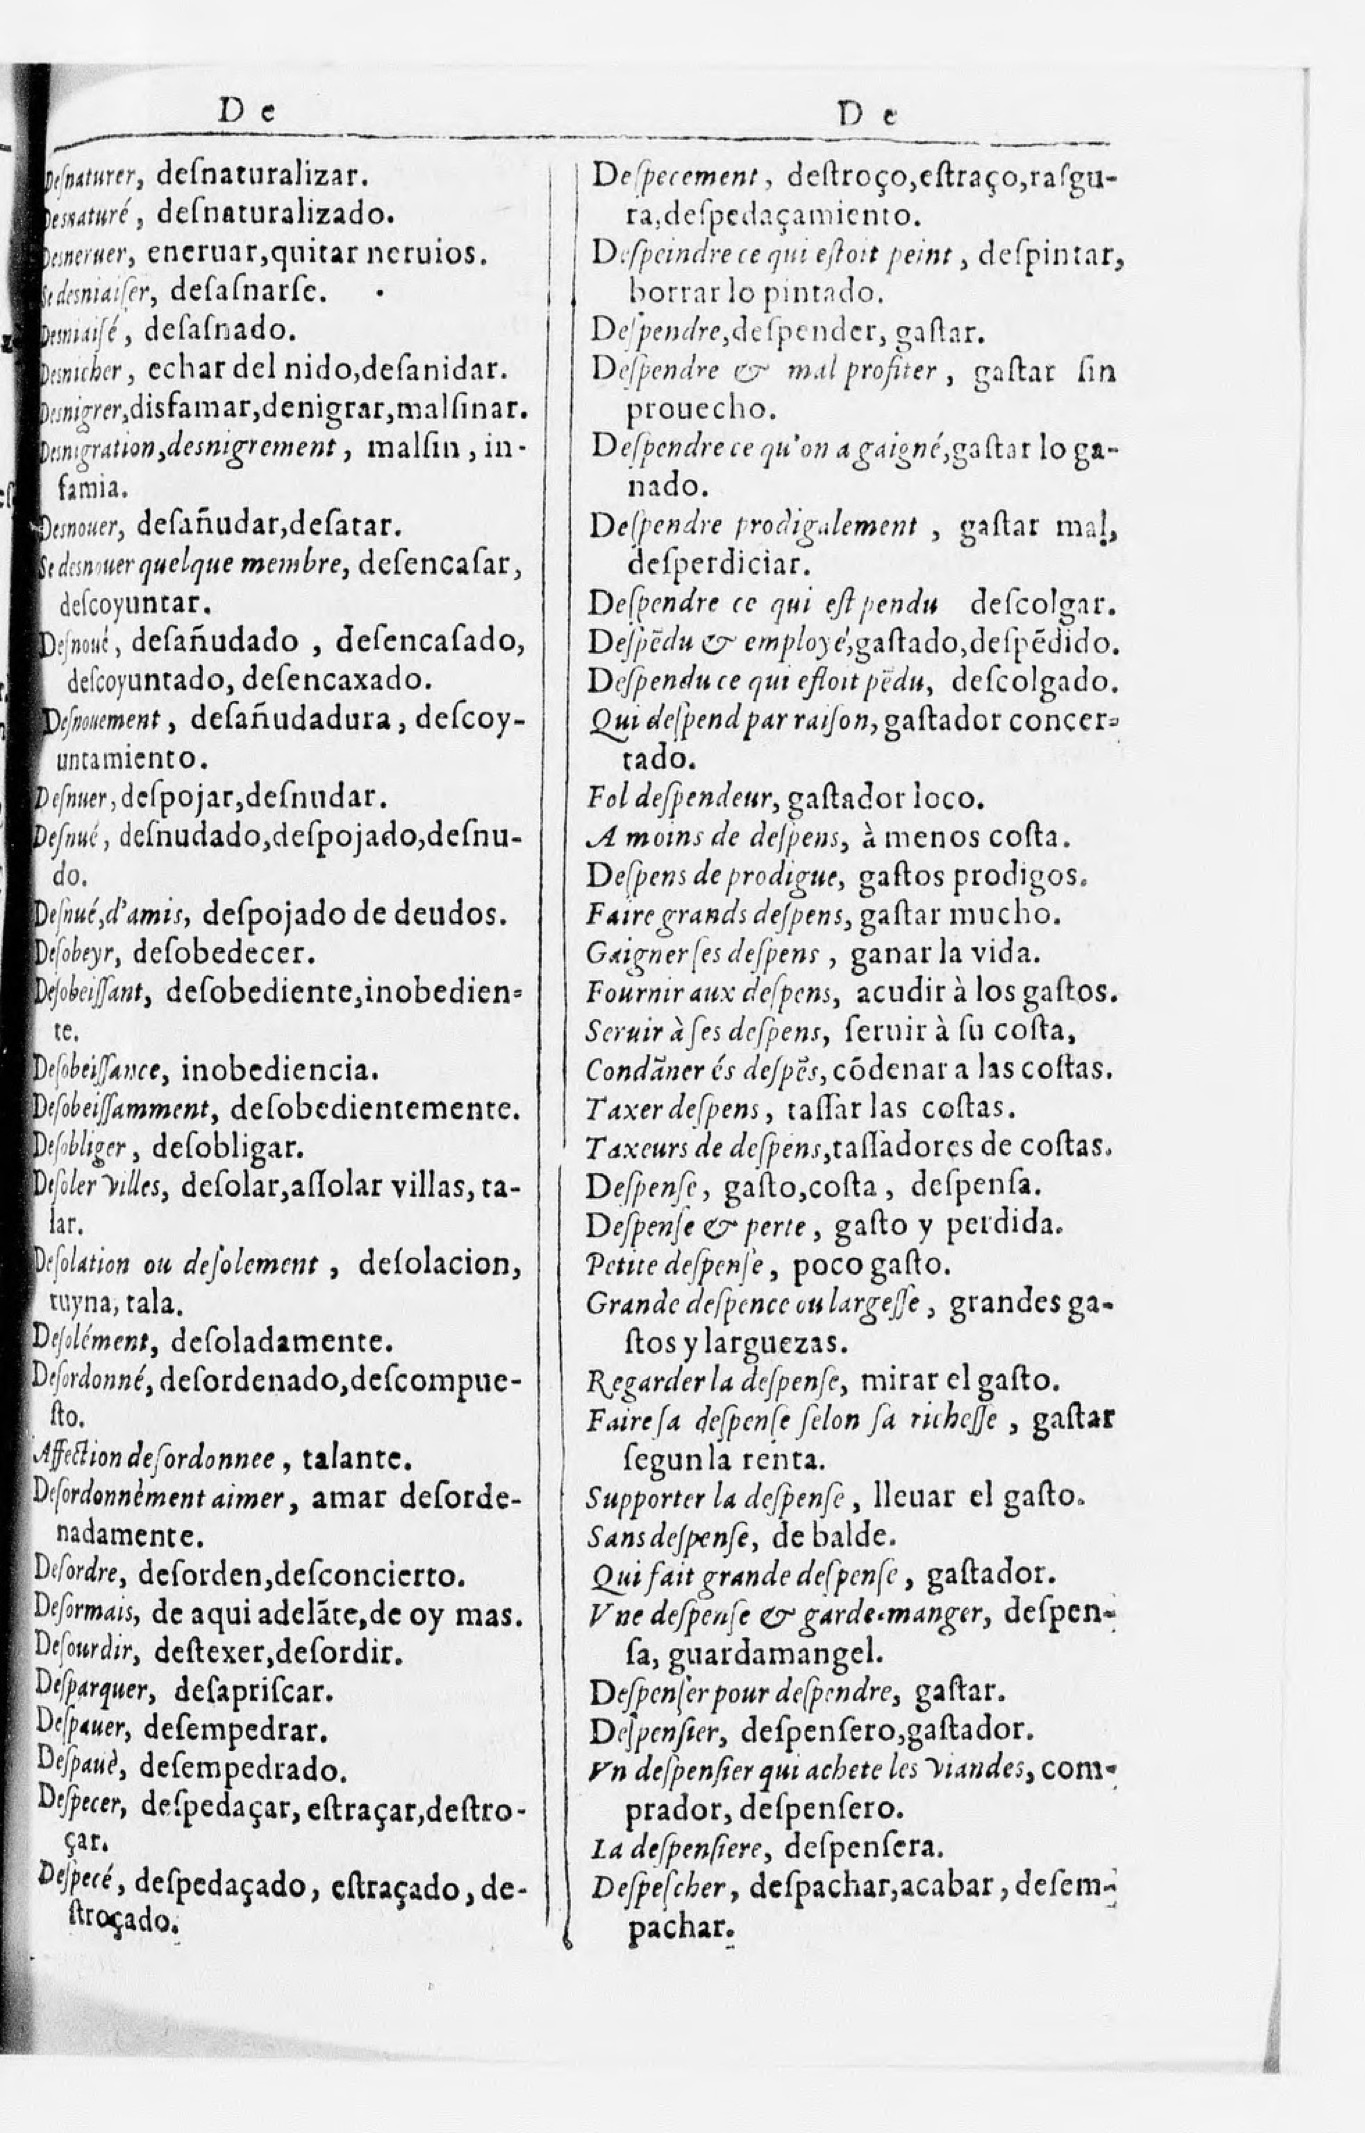 De
Deſnaturer, deſnaturalizar.
Desnaturé, deſnaturalizado.
Desneruer, eneruar,quitar neruios.
Se desniaiſer, deſaſnarſe.
Desniaiſé, deſaſnado.
Desnicher, echar del nido,deſanidar.
Desnigrer,disfamar,denigrar,malſinar.
Desnigration,desnigrement, malſin, in-
famia.
Desnouer, deſañudar,deſatar.
Se desnouer quelque membre, deſencaſar,
deſcoyuntar.
Deſnoué, deſañudado, deſencaſado,
deſcoyuntado, deſencaxado.
Deſnouement, deſañudadura, deſcoy-
untamiento.
Deſnuer, deſpojar,deſnudar.
Deſnué, deſnudado,deſpojado,deſnu-
do.
Deſnué,d'amis, deſpojado de deudos.
Deſobeyr, deſobedecer.
Deſobeiſſant, deſobediente,inobedien-
te.
Deſobeiſſance, inobediencia.
Deſobeiſſamment, deſobedientemente.
Deſobliger, deſobligar.
Deſoler villes, deſolar,aſſolar villas, ta-
lar.
Deſolation ou deſolement, deſolacion,
ruyna, tala.
Deſolément, deſoladamente.
Deſordonné, deſordenado,deſcompue-
ſto.
Affection deſordonnee, talante.
Deſordonnèment aimer, amar deſorde-
nadamente.
Deſordre, deſorden,deſconcierto.
Deſormais, de aqui adelãte,de oy mas.
Deſourdir, deſtexer,deſordir.
Deſparquer, deſapriſcar.
Deſpauer, deſempedrar.
Deſpauè, deſempedrado.
Deſpecer, deſpedaçar, eſtraçar,deſtro-
çar.
Deſpecé, deſpedaçado, eſtraçado, de-
ſtroçado.
De
Deſpecement, deſtroço,eſtraço,raſgu-
ra,deſpedaçamiento.
Deſpeindre ce qui eſtoit peint, deſpintar,
borrar lo pintado.
Deſpendre,deſpender, gaſtar.
Deſpendre & mal profiter, gaſtar ſin
prouecho.
Deſpendre ce qu'on a gaigné,gaſtar lo ga-
nado.
Deſpendre prodigalement, gaſtar mal,
deſperdiciar.
Deſpendre ce qui eſt pendu deſcolgar.
Deſpẽdu & employé,gaſtado,deſpẽdido.
Deſpendu ce qui eſtoit pẽdu, deſcolgado.
Qui deſpend par raiſon, gaſtador concer-
tado.
Fol deſpendeur, gaſtador loco.
A moins de deſpens, à menos coſta.
Deſpens de prodigue, gaſtos prodigos.
Faire grands deſpens, gaſtar mucho.
Gaigner ſes deſpens, ganar la vida.
Fournir aux deſpens, acudir à los gaſtos.
Seruir à ſes deſpens, ſeruir à ſu coſta,
Condãner és deſpẽs, cõdenar a las coſtas.
Taxer deſpens, taſſar las coſtas.
Taxeurs de deſpens,taſſadores de coſtas.
Deſpenſe, gaſto,coſta, deſpenſa.
Deſpenſe & perte, gaſto y perdida.
Petite deſpenſe, poco gaſto.
Grande deſpence ou largeſſe, grandes ga-
ſtos y larguezas.
Regarder la deſpenſe, mirar el gaſto.
Faire ſa deſpenſe ſelon ſa richeſſe, gaſtar
ſegun la renta.
Supporter la deſpenſe, lleuar el gaſto.
Sans deſpenſe, de balde.
Qui fait grande deſpenſe, gaſtador.
Vne deſpenſe & garde-manger, deſpen-
ſa, guardamangel.
Deſpenſer pour deſpendre, gaſtar.
Deſpenſier, deſpenſero,gaſtador.
Vn deſpenſier qui achete les viandes, com-
prador, deſpenſero.
La deſpenſiere, deſpenſera.
Deſpeſcher, deſpachar,acabar, deſem-
pachar.